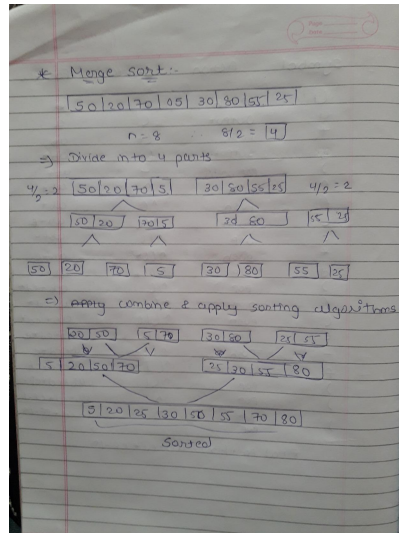 * Merge sort:-
50 | 20 | 70 | 05 | 30 | 80 | 55 | 25
n = 8 8/2 = 4
⇒ Divide n to 4 parts
4/2 = 2 50 | 20 | 70 | 5 30 | 80 | 55 | 25 4/2 = 2
50 | 20 70 | 5 30 80 55 | 25
50 20 70 5 30 80 55 25
⇒ combine & apply sorting algorithms
20 | 50 5 | 70 30 | 80 25 | 55
5 | 20 | 50 | 70 25 | 30 | 55 | 80
5 | 20 | 25 | 30 | 50 | 55 | 70 | 80
Sorted